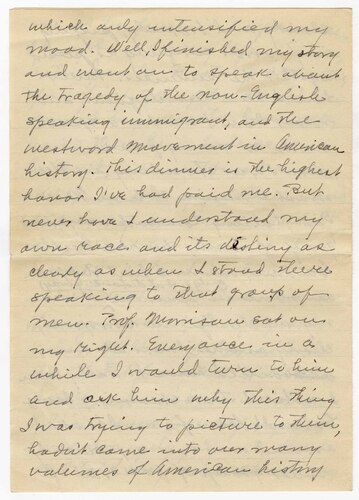 which only intensified my
mood. Well, I finished my story
and went on to speak about
the tragedy of the non-English
speaking immigrant, and the
westword movement in American
history. This dinner is the highest
honor I've had paid me. But
never have I understood my
own race and its distiny as
clearly as when I stood there
speaking to that group of
men. Prof. Morrison sat on
my right. Every once in a
while I would turn to him
and ask him why this thing
I was trying to picture to them,
hadn't come into our many
volumes of American history